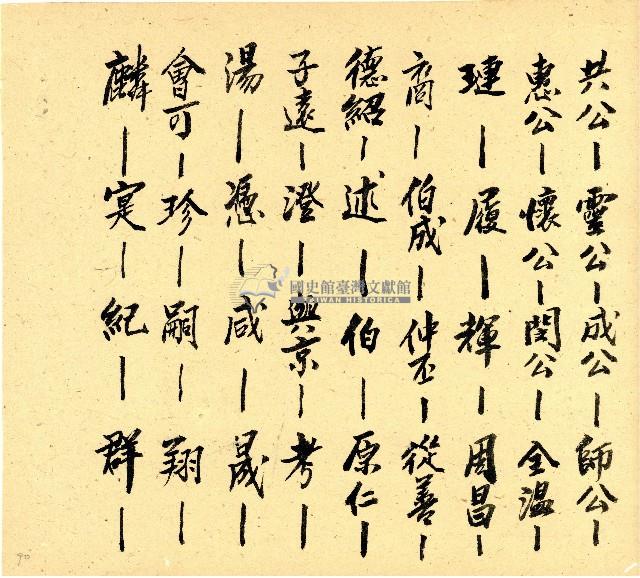 共公－靈公－成公－師公－
惠公－懷公－閔公－全温－
璉－履－輝－周昌－
裔－伯成－仲丕－從善－
德紹－述－伯－原仁－
子遠－澄－興京－考－
湯－憑－咸－晟－
會可－珍－嗣－翔－
麟－寔－紀－群－
國史館臺灣文獻館
TAIWAN HISTORICA
90